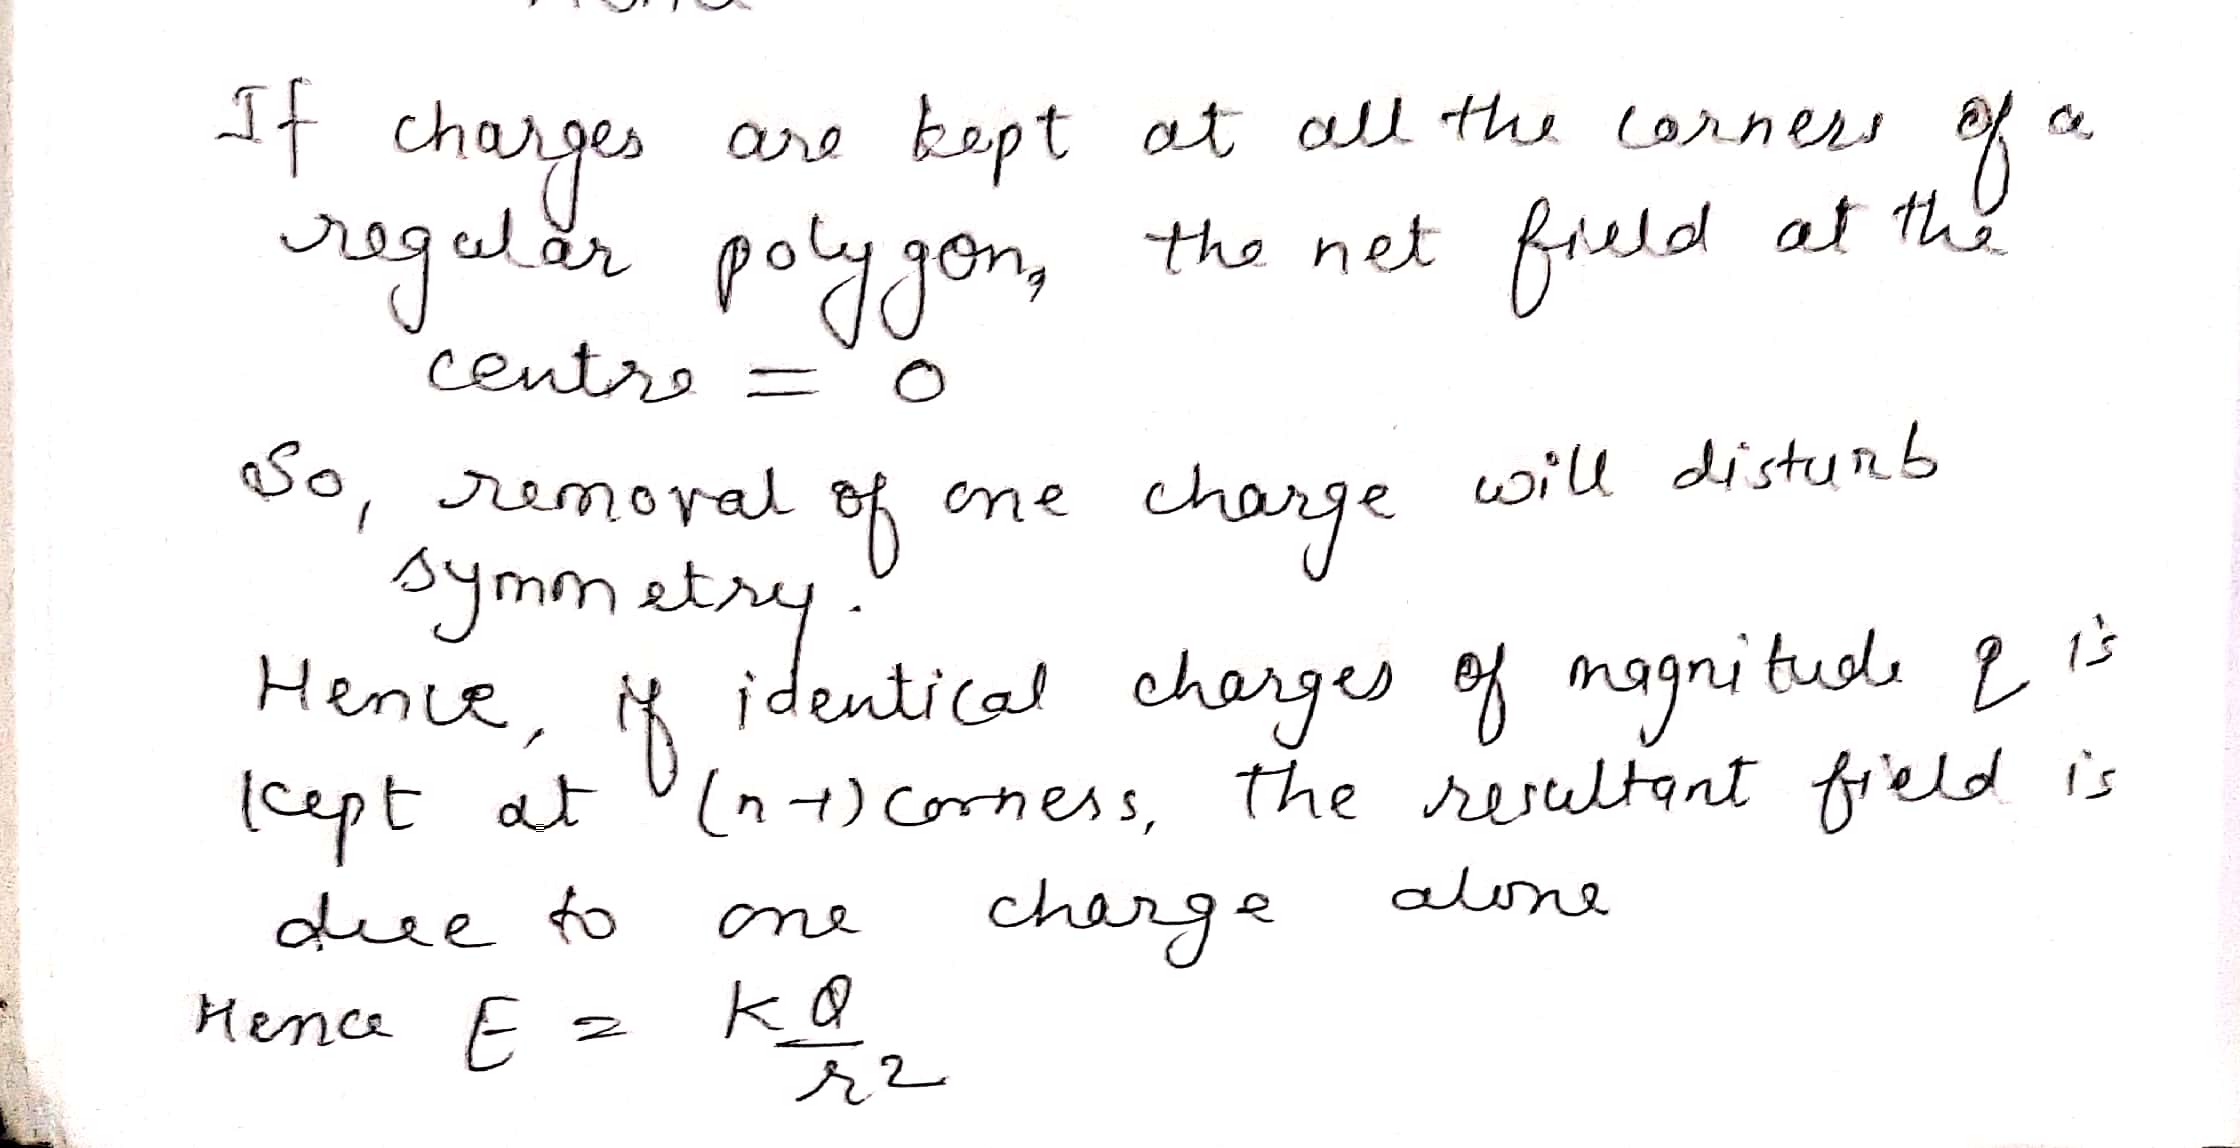 If charges are kept at all the corners of a
regular polygon, the net field at the
centre = 0
So, removal of one charge will disturb
symmetry.
Hence, if identical charges of magnitude q is
kept at (n-1) corners, the resultant field is
due to one charge alone
Hence E = KQ/r²